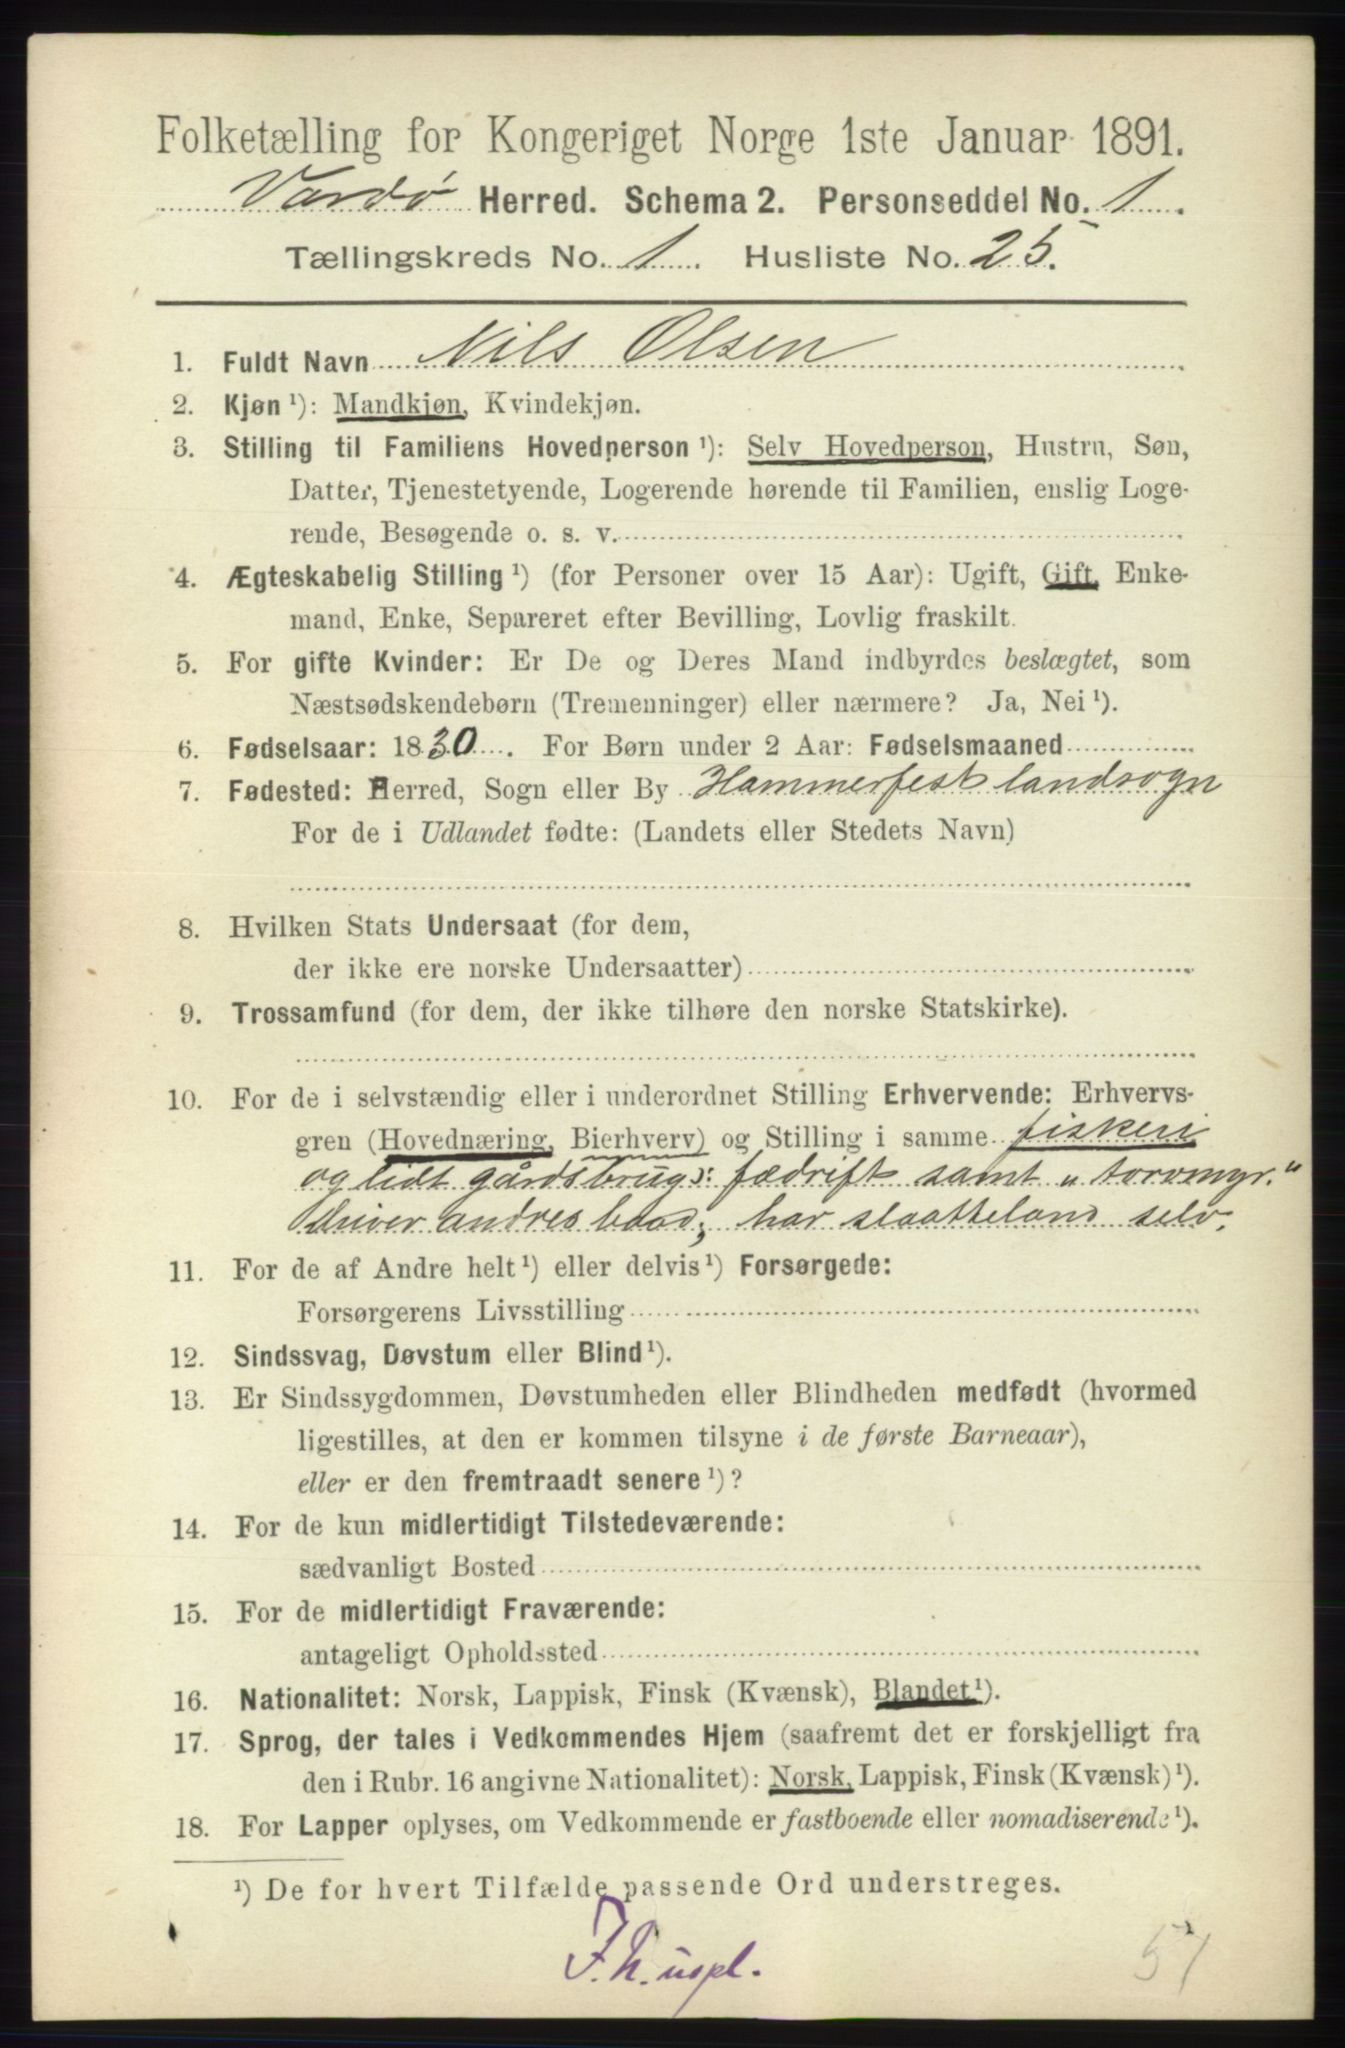 Folketælling for Kongeriget Norge 1ste Januar 1891.
Vardø Herred. Schema 2. Personseddel No. 1
Tællingskreds No. 1 Husliste No. 25.
1. Fuldt Navn Nils Olsen
2. Kjøn ¹): Mandkjøn, Kvindekjøn.
3. Stilling til Familiens Hovedperson ¹): Selv Hovedperson, Hustru, Søn,
Datter, Tjenestetyende, Logerende hørende til Familien, enslig Loge-
rende, Besøgende o. s. v.
4. Ægteskabelig Stilling ¹) (for Personer over 15 Aar): Ugift, Gift, Enke-
mand, Enke, Separeret efter Bevilling, Lovlig fraskilt.
5. For gifte Kvinder: Er De og Deres Mand indbyrdes beslægtet, som
Næstsødskendebørn (Tremenninger) eller nærmere? Ja, Nei ¹).
6. Fødselsaar: 1830. For Børn under 2 Aar: Fødselsmaaned
7. Fødested: Herred, Sogn eller By Hammerfest landsogn
For de i Udlandet fødte: (Landets eller Stedets Navn)
8. Hvilken Stats Undersaat (for dem,
der ikke ere norske Undersaatter)
9. Trossamfund (for dem, der ikke tilhøre den norske Statskirke).
10. For de i selvstændig eller i underordnet Stilling Erhvervende: Erhvervs-
gren (Hovednæring, Bierhverv) og Stilling i samme fiskeri
og lidt gårdsbrug: fædrift samt "torvmyr."
driver andres baad; har slaatteland selv.
11. For de af Andre helt ¹) eller delvis ¹) Forsørgede:
Forsørgerens Livsstilling
12. Sindssvag, Døvstum eller Blind ¹).
13. Er Sindssygdommen, Døvstumheden eller Blindheden medfødt (hvormed
ligestilles, at den er kommen tilsyne i de første Barneaar),
eller er den fremtraadt senere ¹)?
14. For de kun midlertidigt Tilstedeværende:
sædvanligt Bosted
15. For de midlertidigt Fraværende:
antageligt Opholdssted
16. Nationalitet: Norsk, Lappisk, Finsk (Kvænsk), Blandet ¹).
17. Sprog, der tales i Vedkommendes Hjem (saafremt det er forskjelligt fra
den i Rubr. 16 angivne Nationalitet): Norsk, Lappisk, Finsk (Kvænsk) ¹).
18. For Lapper oplyses, om Vedkommende er fastboende eller nomadiserende ¹).
¹) De for hvert Tilfælde passende Ord understreges.